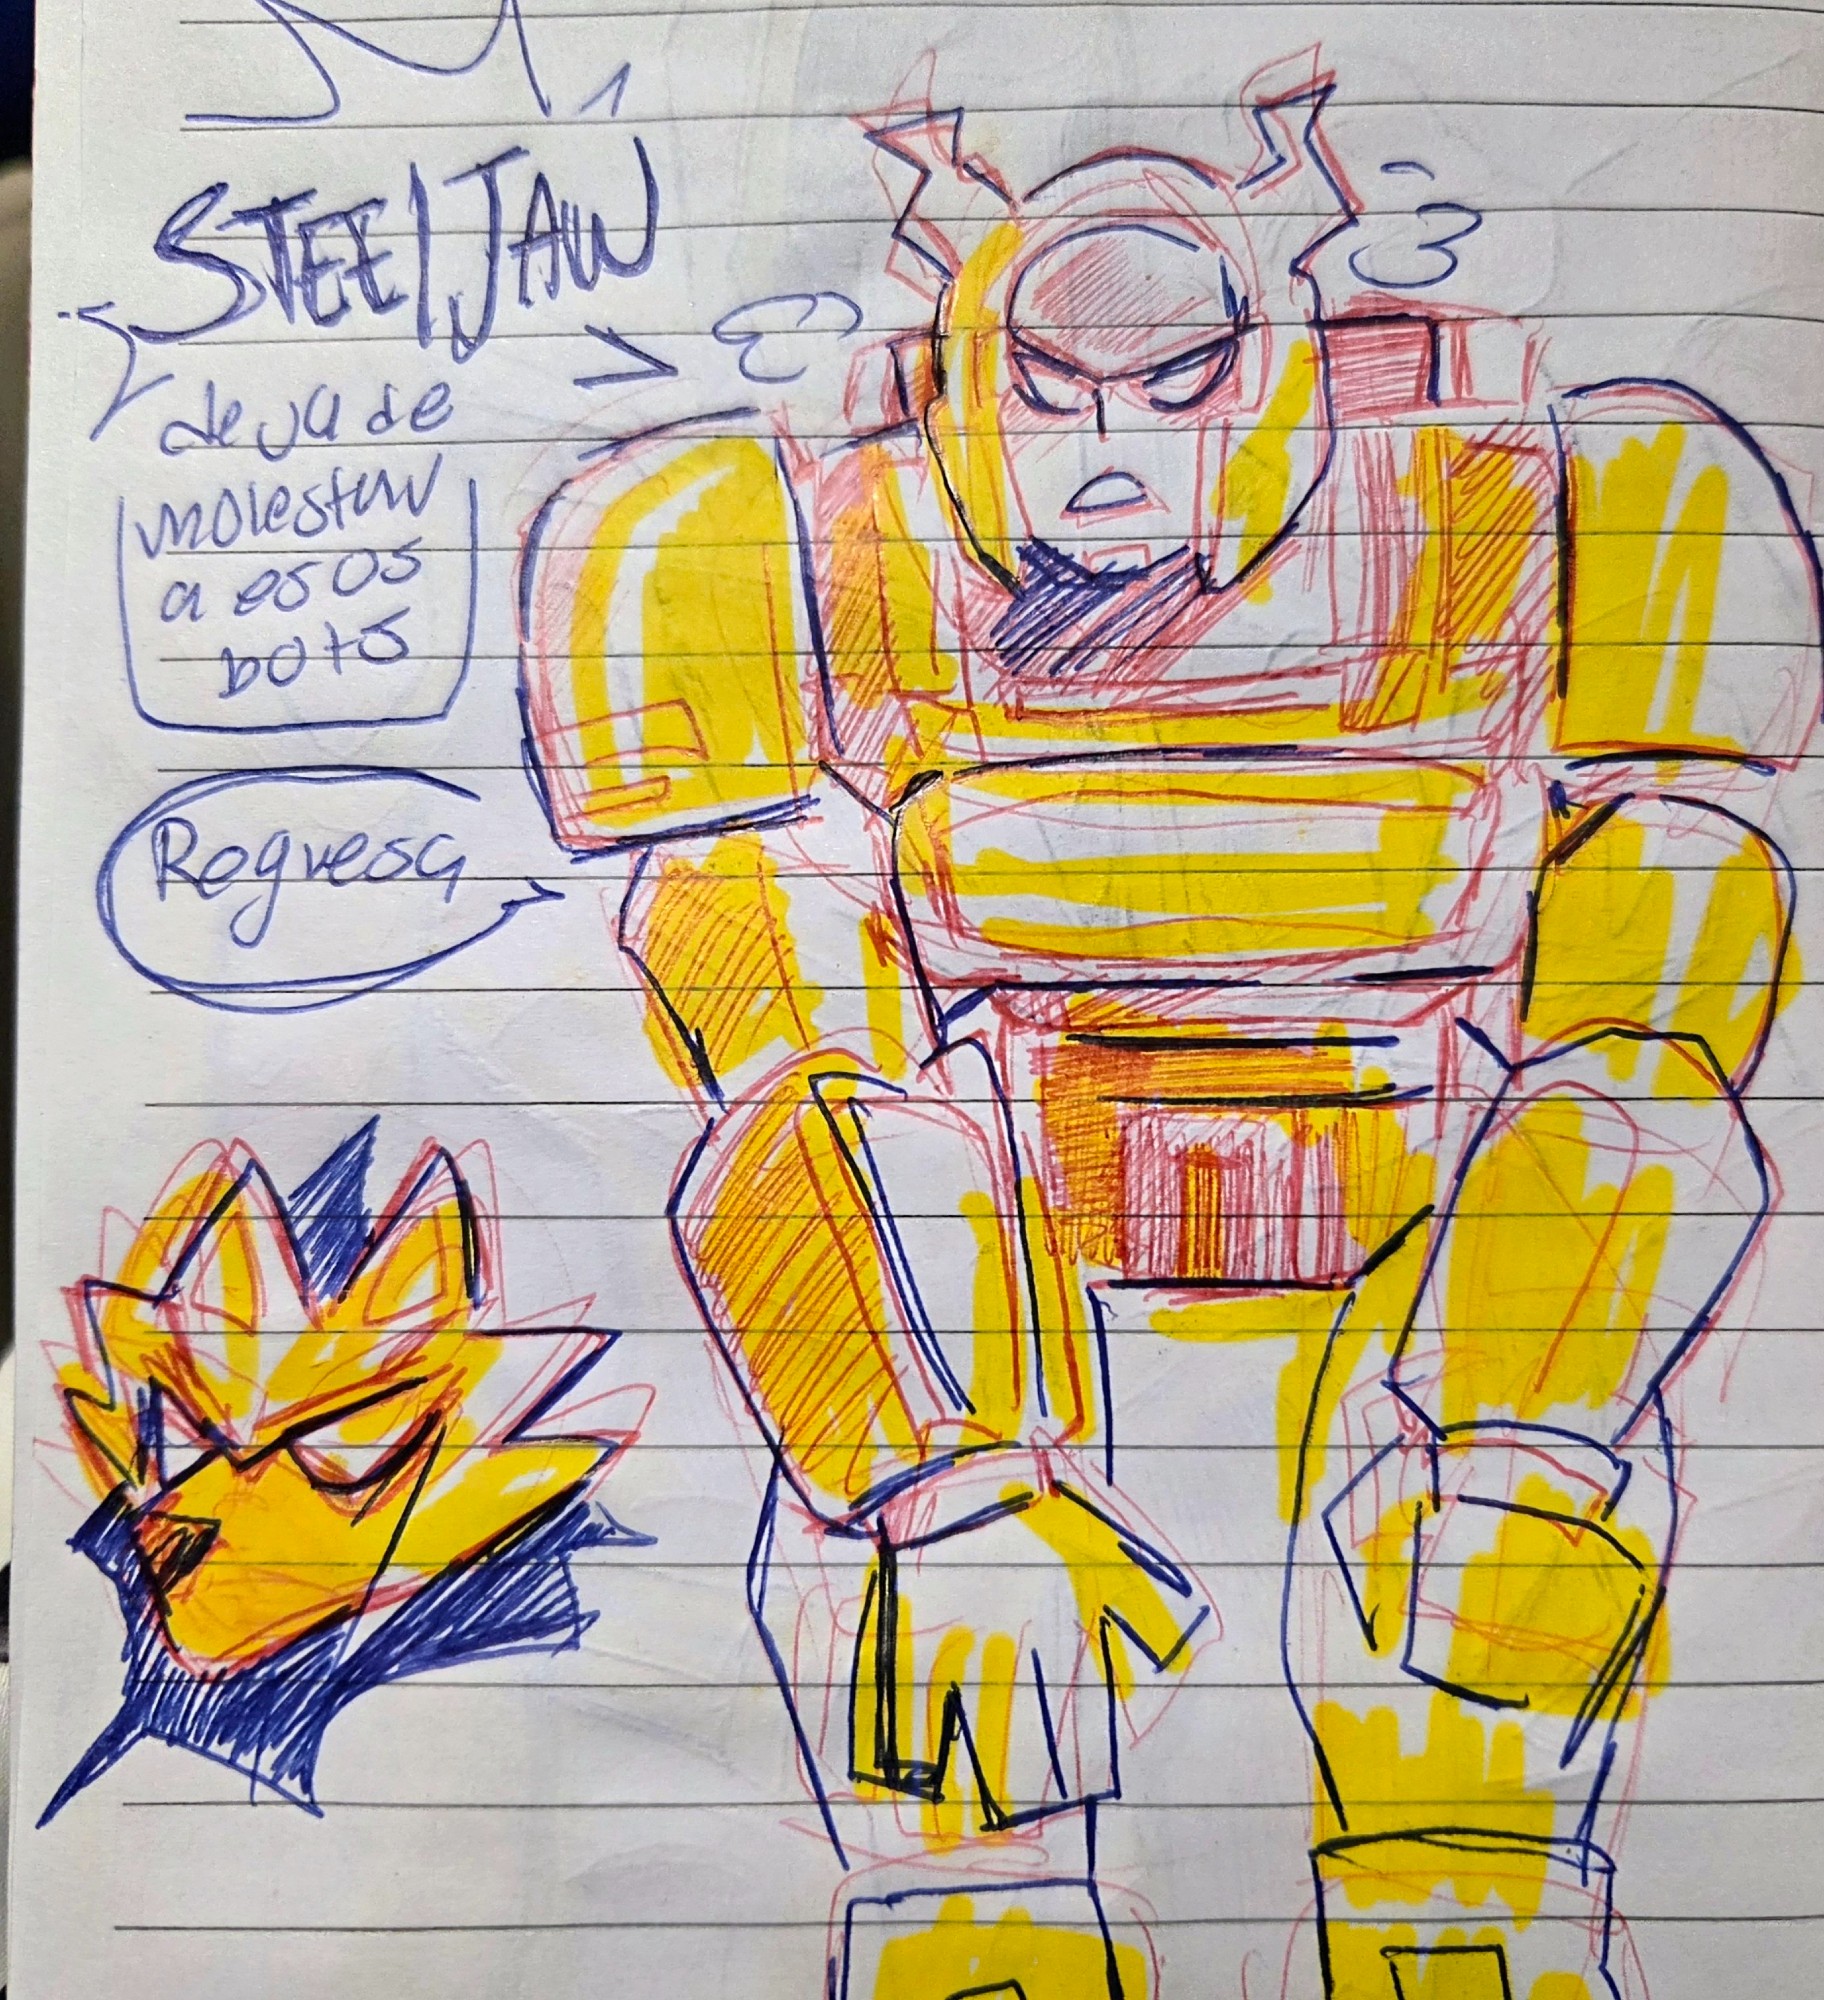 STEELJAW
deja de
molestar
a esos
bots
Regresa